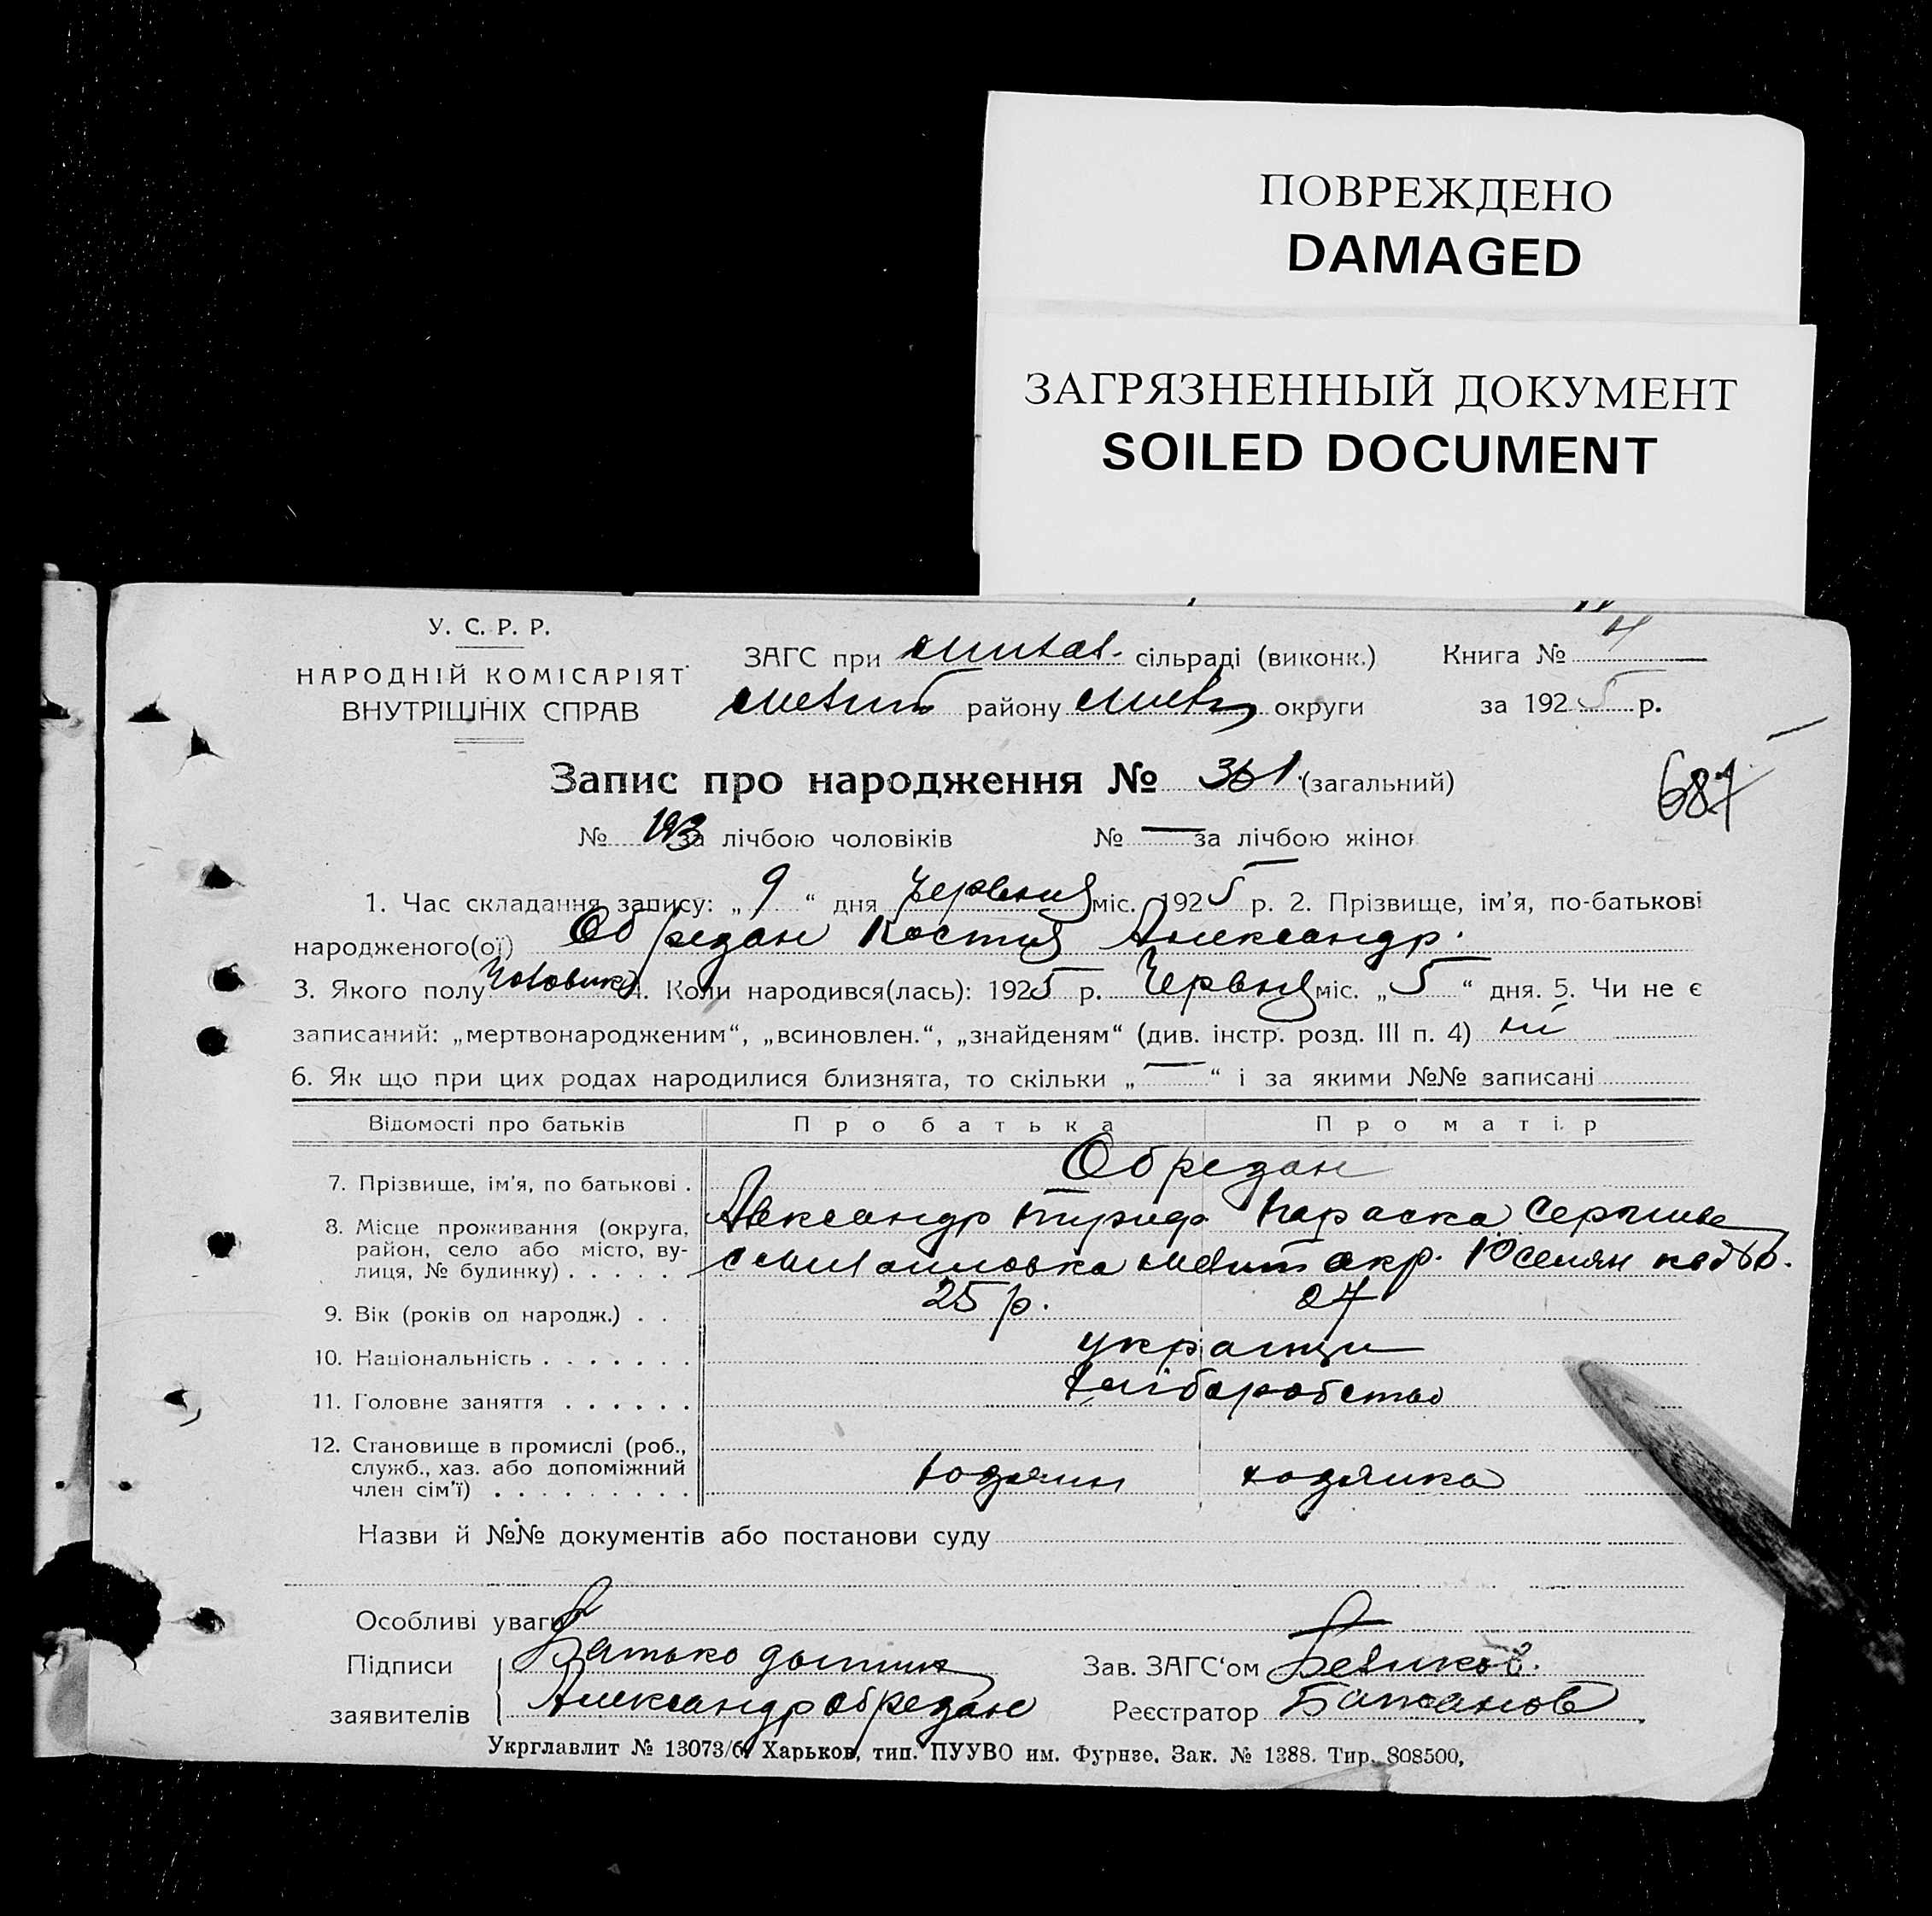 ПОВРЕЖДЕНО
DAMAGED
ЗАГРЯЗНЕННЫЙ ДОКУМЕНТ
SOILED DOCUMENT
У. С. Р. Р.
НАРОДНІЙ КОМІСАРІЯТ
ВНУТРІШНІХ СПРАВ
ЗАГС при сільраді (виконк.) Книга № 4
району округи за 1925 р.
Запис про народження № 361 (загальний)
687
№ 193 за лічбою чоловіків № — за лічбою жінок
1. Час складання запису: „9“ дня Червня міс. 1925 р. 2. Прізвище, ім'я, по-батькові
народженого(ої) Обредан Костя Александр.
3. Якого полу Чоловик 4. Коли народився(лась): 1925 р. Червня міс. „5“ дня. 5. Чи не є
записаний: „мертвонародженим“, „всиновлен.“, „знайденям“ (див. інстр. розд. III п. 4) ни
6. Як що при цих родах народилися близнята, то скільки „—“ і за якими №№ записані
Відомості про батьків Про батька Про матір
7. Прізвище, ім'я, по батькові . Обредан
Александр Параска
8. Місце проживання (округа, район, село або місто, вулиця, № будинку) . . . . . окр.
9. Вік (років од народж.) . . 25 р. 27
10. Національність . . . . . . . украінци
11. Головне заняття . . . . . . хліборобство
12. Становище в промислі (роб.,
служб., хаз. або допоміжний
член сім'ї) . . . . . . . . . хозяин хозяика
Назви й №№ документів або постанови суду
Особливі уваги
Підписи Батько Зав. ЗАГС‘ом Беликов.
заявителів Александр Обредан Реєстратор Бажанов
Укрглавлит № 13073/6. Харьков, тип. ПУУВО им. Фурнзе. Зак. № 1388. Тир. 808500,